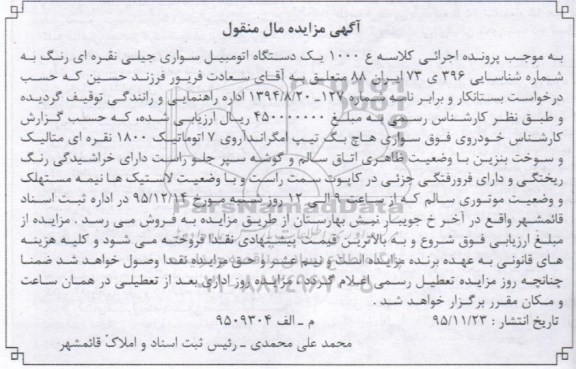 آگهی مزایده مال منقول
به موجب پرونده اجرائی کلاسه ع ۱۰۰۰ یک دستگاه اتومبیل سواری جیلی نقره ای رنگ به
شماره شناسایی ۳۹۶ ی ۷۳ ایران ۸۸ متعلق به آقای سعادت فریور فرزند حسین که حسب
درخواست بستانکار و برابر نامه شماره ۱۲۷ـ ۱۳۹۴/۸/۲۰ اداره راهنمایی و رانندگی توقیف گردیده
و طبق نظر کارشناس رسمی به مبلغ ۴۵۰۰۰۰۰۰۰ ریال ارزیابی شده، که حسب گزارش
کارشناس خودروی فوق سواری هاچ بک تیپ امگراند آروی ۷ اتوماتیک ۱۸۰۰ نقره ای متالیک
و سوخت بنزین با وضعیت ظاهری اتاق سالم و گوشه سپر جلو راست دارای خراشیدگی رنگ
ریختگی و دارای فرورفتگی جزئی در کاپوت سمت راست و با وضعیت لاستیک ها نیمه مستهلک
و وضعیت موتوری سالم که از ساعت ۹ الی ۱۲ روز شنبه مورخ ۹۵/۱۲/۱۴ در اداره ثبت اسناد
قائمشهر واقع در آخر خ جویبار نبش بهارستان از طریق مزایده به فروش می رسد . مزایده از
مبلغ ارزیابی فوق شروع و به بالاترین قیمت پیشنهادی نقدا فروخته می شود و کلیه هزینه
های قانونی به عهده برنده مزایده است و نیم عشر و حق مزایده نقدا وصول خواهد شد ضمنا
چنانچه روز مزایده تعطیل رسمی اعلام گردد، مزایده روز اداری بعد از تعطیلی در همان ساعت
و مکان مقرر برگزار خواهد شد .
تاریخ انتشار : ۹۵/۱۱/۲۳ م ـ الف ۹۵۰۹۳۰۴
محمد علی محمدی ـ رئیس ثبت اسناد و املاک قائمشهر
ParsNamadData